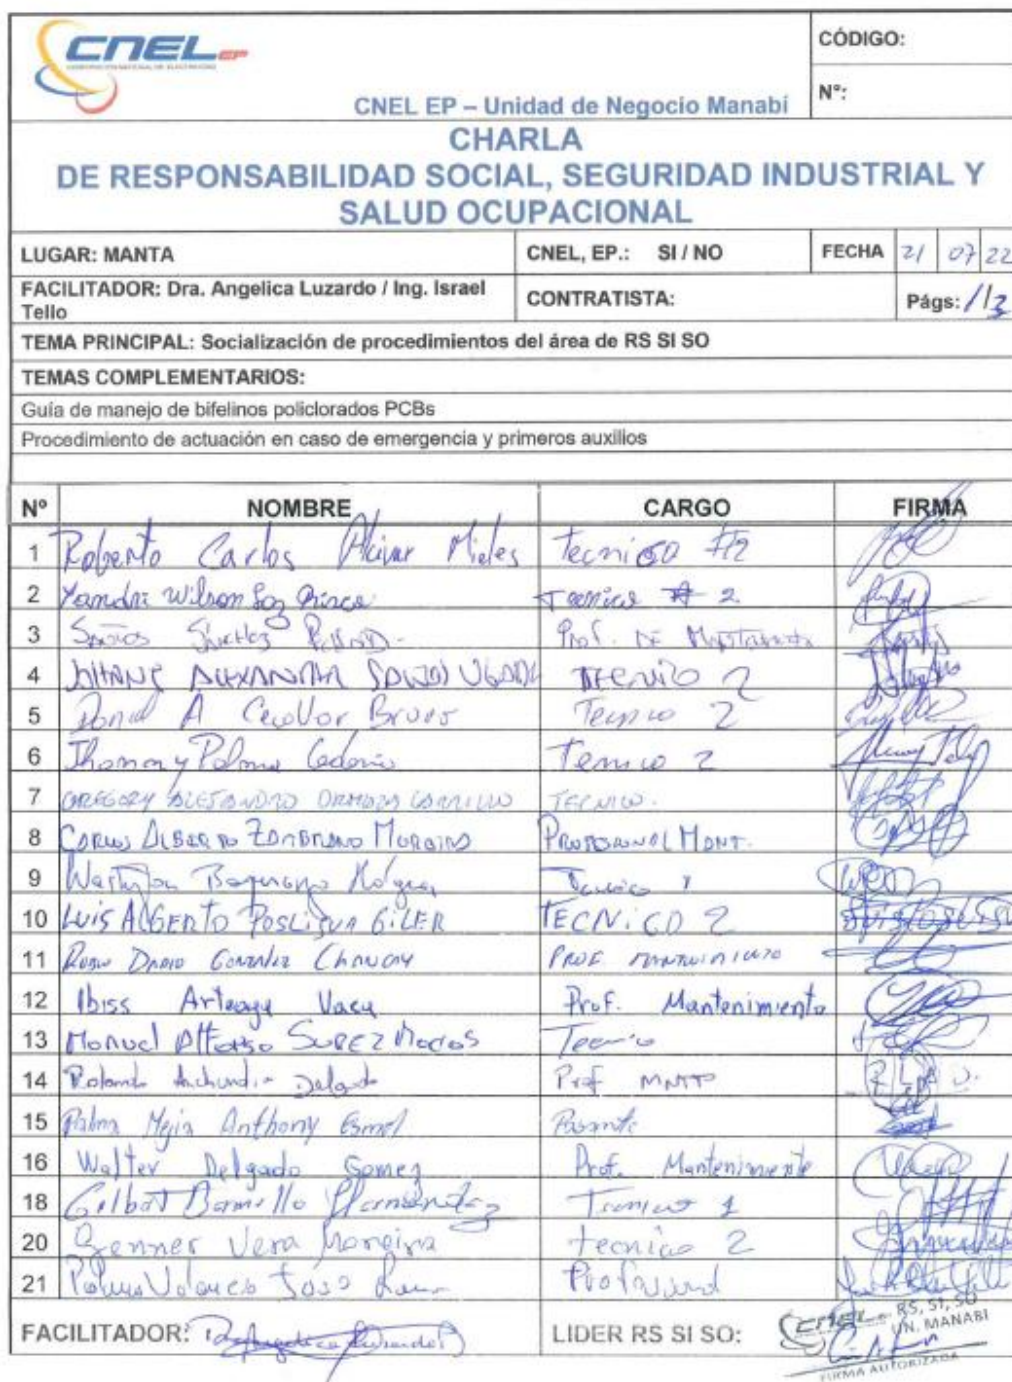 CNEL EP
CORPORACIÓN NACIONAL DE ELECTRICIDAD
CNEL EP – Unidad de Negocio Manabí
CÓDIGO:
N°:
CHARLA
DE RESPONSABILIDAD SOCIAL, SEGURIDAD INDUSTRIAL Y
SALUD OCUPACIONAL
LUGAR: MANTA CNEL, EP.: SI / NO FECHA 21 07 22
FACILITADOR: Dra. Angelica Luzardo / Ing. Israel
Tello CONTRATISTA: Págs: 1/3
TEMA PRINCIPAL: Socialización de procedimientos del área de RS SI SO
TEMAS COMPLEMENTARIOS:
Guía de manejo de bifelinos policlorados PCBs
Procedimiento de actuación en caso de emergencia y primeros auxilios
Nº NOMBRE CARGO FIRMA
1 Roberto Carlos Mieles Tecnico #2
2 Wilson Tecnico # 2
3 Prof. DE
4 ALEXANDRA TECNICO 2
5 A Bravo Tecnico 2
6 Jhonny Palma Cedeño Tecnico 2
7 GREGORY ALEJANDRO CARRILLO TECNICO.
8 CARLOS ALBERTO ZAMBRANO MOREIRA PROFESIONAL MONT.
9 Tecnico 1
10 LUIS ALBERTO POSLIGUA GILER TECNICO 2
11 DARIO GONZALEZ PROF. MANTENIMIENTO
12 Ibiss Arteaga Vaca Prof. Mantenimiento
13 Manuel Tecnico
14 Rolando Anchundia Delgado Prof MNTTO
15 Palma Mejia Anthony Pasante
16 Walter Delgado Gomez Prof. Mantenimiento
18 Hernandez Tecnico 1
20 Genner Vera Moreira Tecnico 2
21 Profesional
FACILITADOR: LIDER RS SI SO:
CNEL RS, SI, SO
UN. MANABI
FIRMA AUTORIZADA